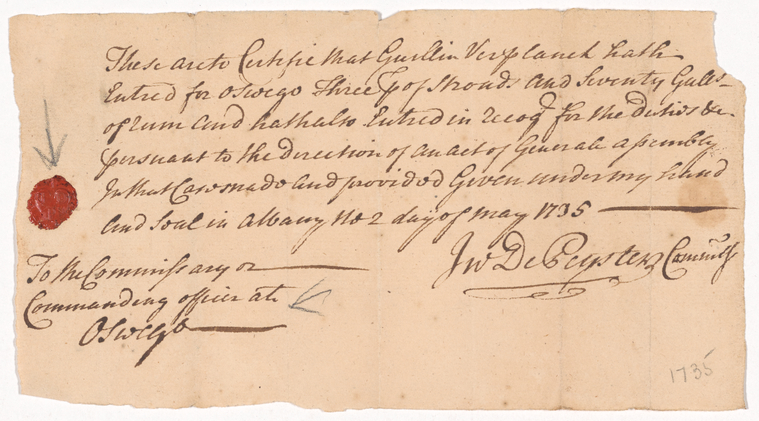 These are to Certifie that Gueline Verplanck hath
Entred for Oswego Three ps of Strouds and Seventy Galls
of rum and hath also Entred in Recog. for the Duties &c
persuant to the Direction of an act of Generale assembly
In that Case made and provided Given under my hand
and Seal in Albany the 2 day of may 1735
Jno De Peyster Commiss
To the Commissary or
Commanding officer att
Oswego
1735